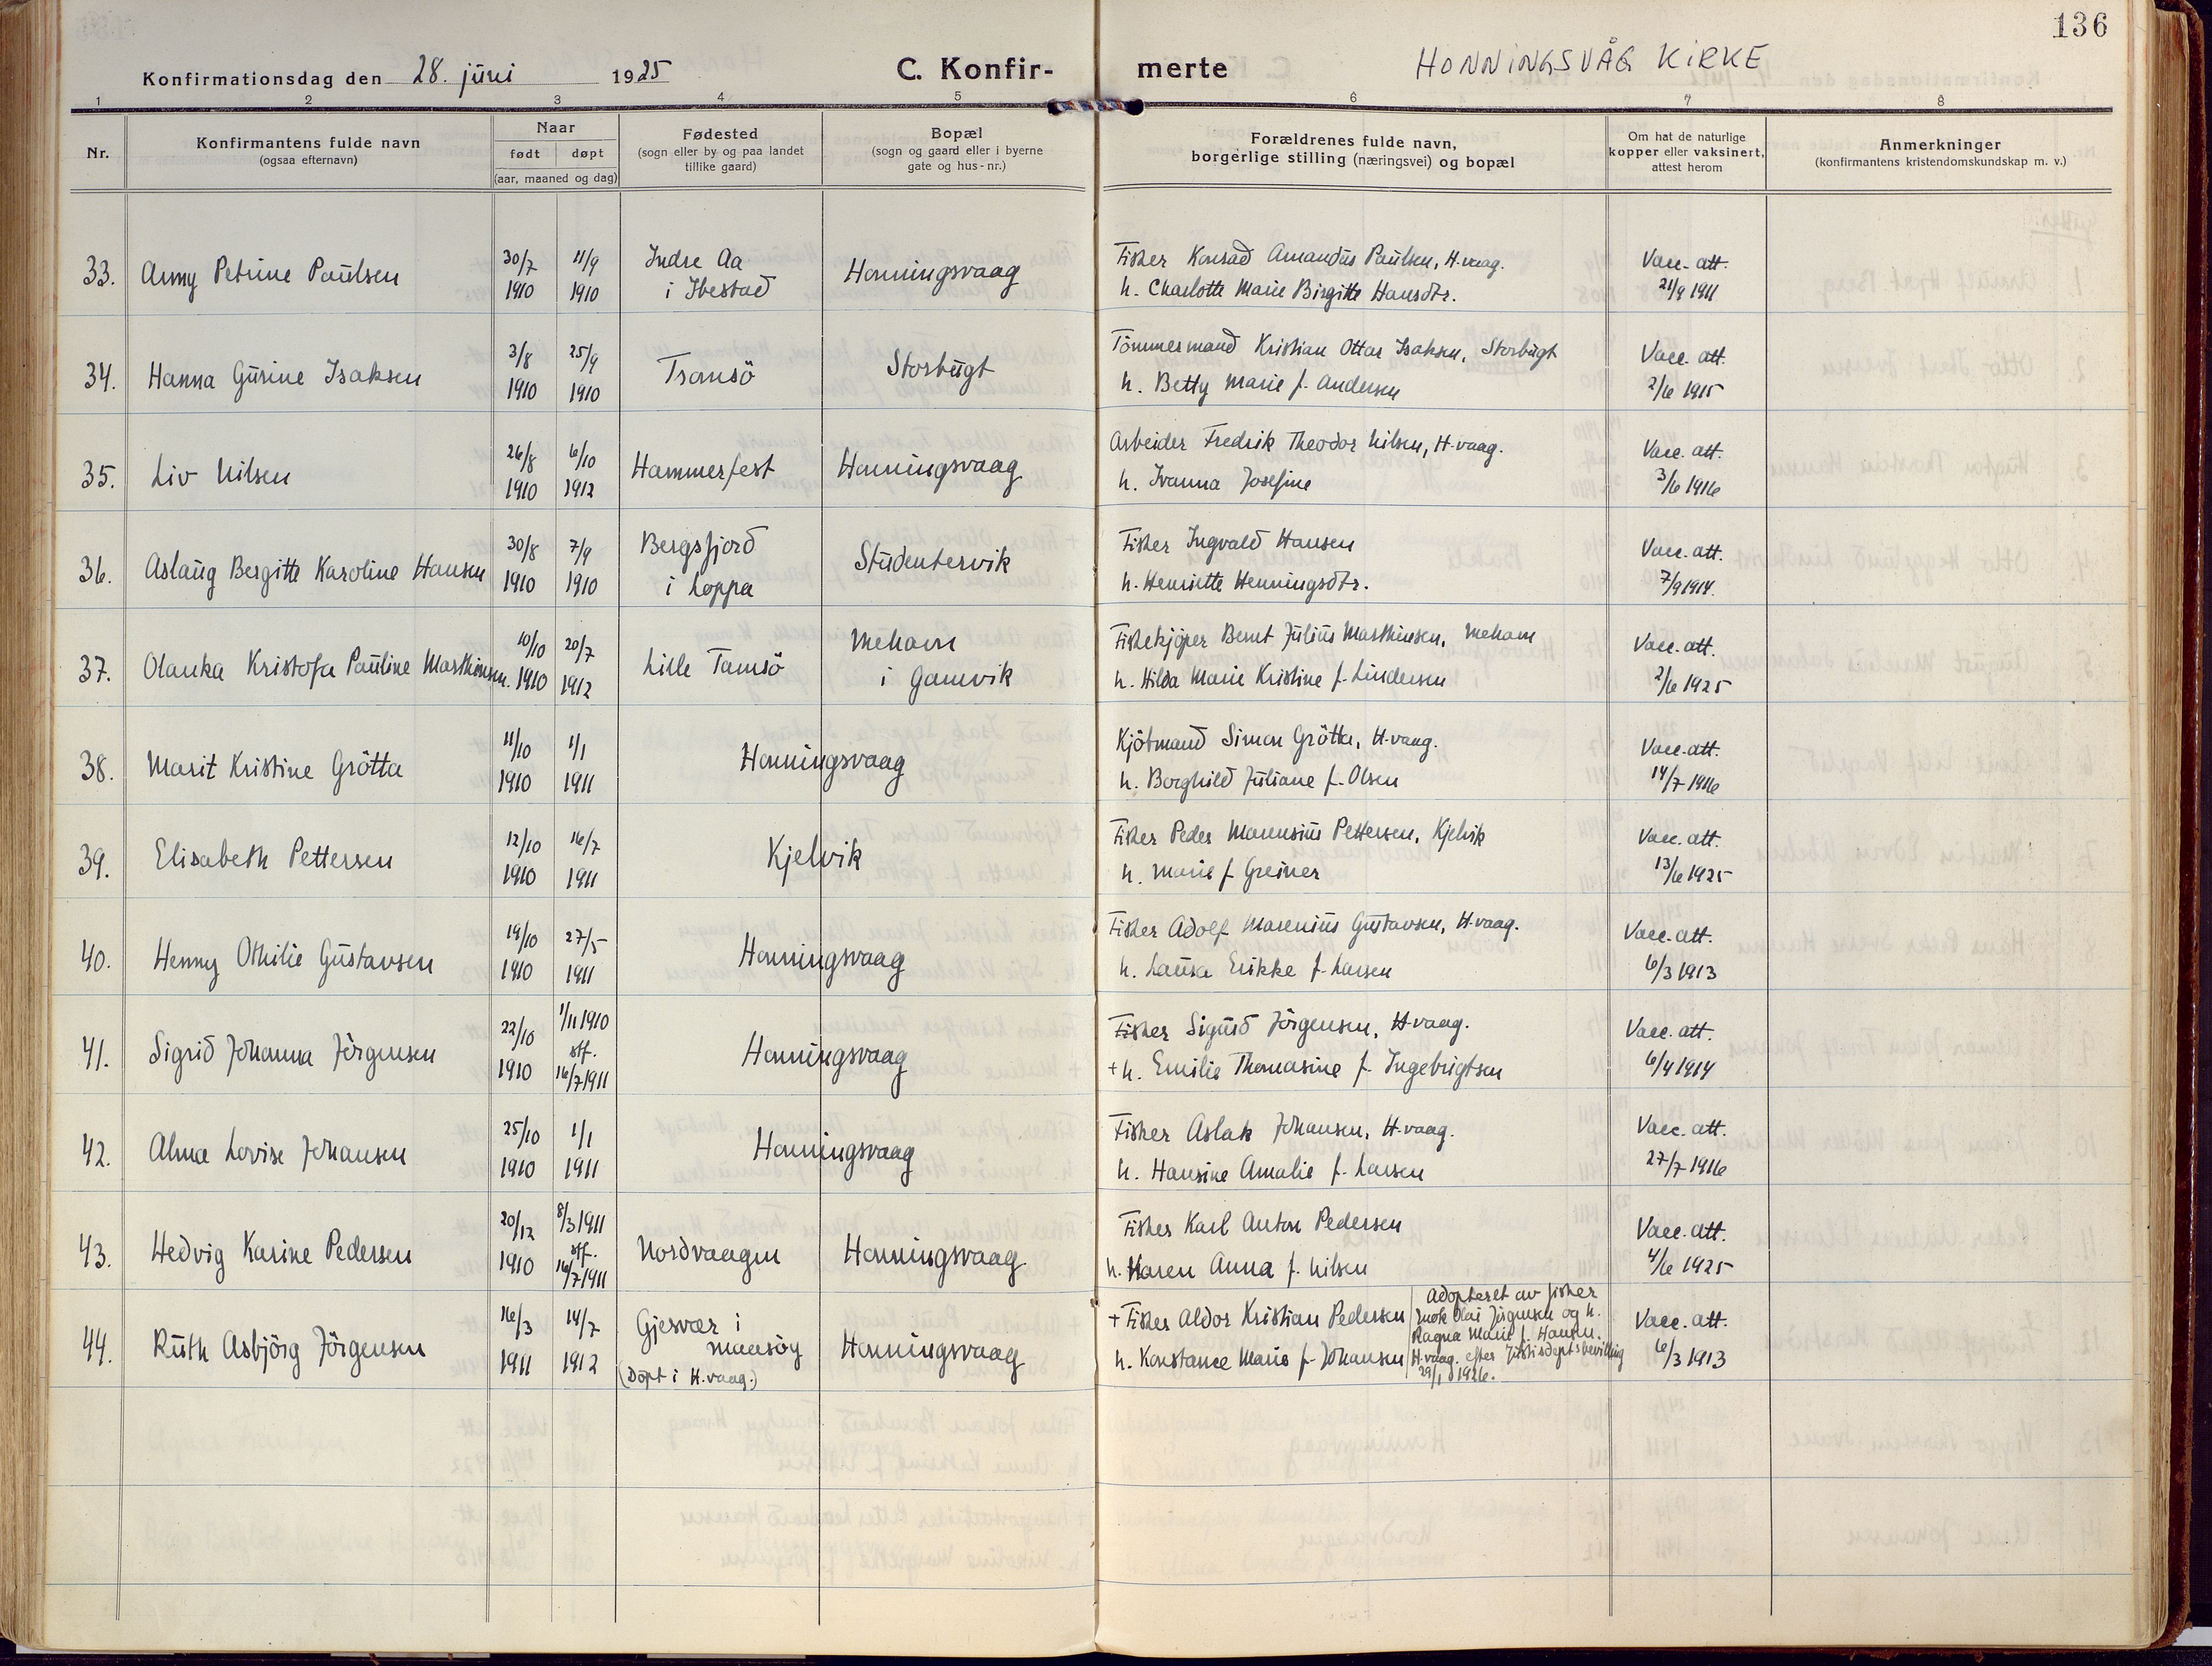 136
Konfirmationsdag den 28. juni 1925 C. Konfirmerte HONNINGSVÅG KIRKE
1 2 3 4 5 6 7 8
Nr.
Konfirmantens fulde navn
(ogsaa efternavn)
Naar
født døpt
(aar, maaned og dag)
Fødested
(sogn eller by og paa landet
tillike gaard)
Bopæl
(sogn og gaard eller i byerne
gate og hus-nr.)
Forældrenes fulde navn,
borgerlige stilling (næringsvei) og bopæl
Om hat de naturlige
kopper eller vaksinert,
attest herom
Anmerkninger
(konfirmantens kristendomskundskap m. v.)
33. Anny Petrine Paulsen 30/7 1910 11/9 1910 Indre Aa
i Ibestad
Honningsvaag
Fisker Konrad Amandus Paulsen, H-vaag.
h. Charlotte Marie Birgitte Hansdtr.
Vacc. att.
21/9 1911
34. Hanna Gurine Isaksen 3/8 1910 25/9 1910 Tromsö Storbugt
Tömmermand Kristian Ottar Isaksen, Storbugt
h. Betty Marie f. Andersen
Vacc. att.
2/6 1915
35. Liv Nilsen 26/8 1910 6/10 1912 Hammerfest Honningsvaag
Arbeider Fredrik Theodor Nilsen, H-vaag.
h. Ivanna Josefine
Vacc. att.
3/6 1916
36. Aslaug Bergitte Karoline Hansen 30/8 1910 7/9 1910 Bergsfjord
i Loppa
Studentervik
Fisker Ingvald Hansen
h. Henriette Henningsdtr.
Vacc. att.
7/9 1914.
37. Olanka Kristofa Pauline Marthinsen. 10/10 1910 20/7 1912 Lille Tamsö
Mehavn
i Gamvik
Fiskekjöper Bernt Julius Marthinsen, Mehavn
h. Hilda Marie Kristine f. Lindersen
Vacc. att.
2/6 1925
38. Marit Kristine Grötta 11/10 1910 1/1 1911 Honningsvaag
Kjöbmand Simon Grötta, H-vaag.
h. Borghild Juliane f. Olsen
Vacc. att.
14/7 1916
39. Elisabeth Pettersen 12/10 1910 16/7 1911 Kjelvik
Fisker Peder Marensius Pettersen, Kjelvik
h. Marie f Greiner
Vacc. att.
13/6 1925
40. Henny Othilie Gustavsen 19/10 1910 27/5 1911 Honningsvaag
Fisker Adolf Marenius Gustavsen, H-vaag.
h. Laura Erikke f. Larsen
Vacc. att.
6/3 1913
41. Sigrid Johanna Jörgensen 22/10 1910 1/11 1910
stf.
16/7 1911
Honningsvaag
Fisker Sigurd Jörgensen, H-vaag.
+ h. Emilie Thomasine f. Ingebrigtsen
Vacc. att.
6/4 1914
42. Alma Lovise Johansen 25/10 1910 1/1 1911 Honningsvaag
Fisker Aslak Johansen, H-vaag.
h. Hansine Amalie f. Larsen
Vacc. att.
27/7 1916
43. Hedvig Karine Pedersen 20/12 1910 8/3 1911
stf.
16/7 1911
Nordvaagen Honningsvaag
Fisker Karl Anton Pedersen
h. Maren Anna f. Nilsen
Vacc. att.
4/6 1925
44. Ruth Asbjörg Jörgensen 16/3 1911 14/7 1912 Gjesvær i
Maasöy
(Döpt i H.vaag.)
Honningsvaag
+ Fisker Aldor Kristian Pedersen
h. Konstance Marie f. Johansen
Adopteret av fisker
Olai Jörgensen og h.
Ragna Marie f. Hansen.
H-vaag. efter Justisdeptsbevilling
29/1 1926.
Vacc. att.
6/3 1913